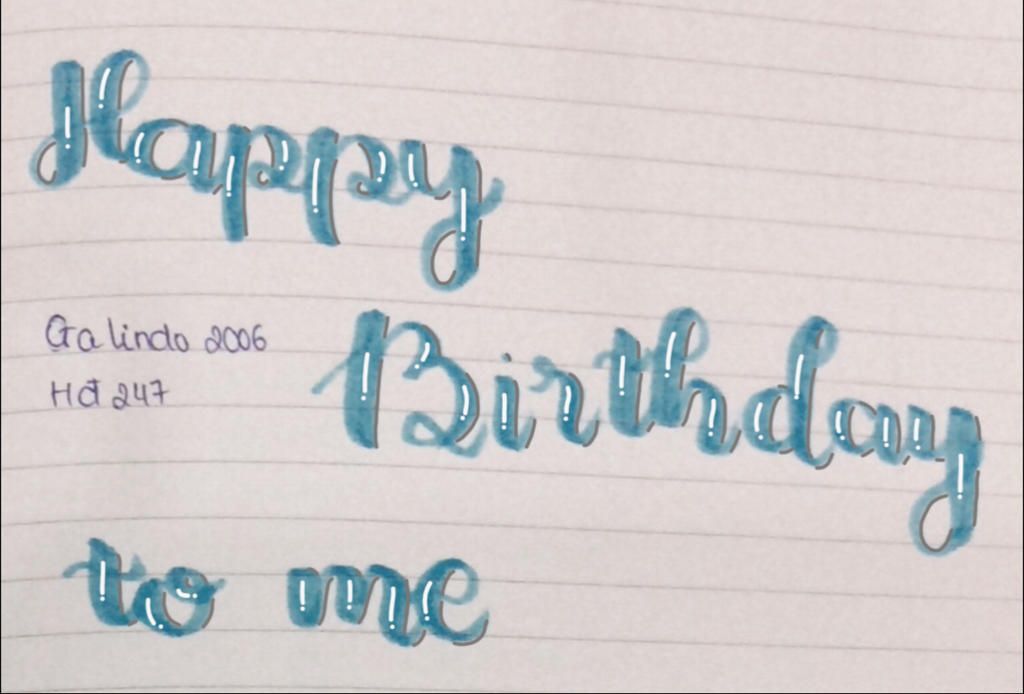 Happy
Galindo 2006
Birthday
to me